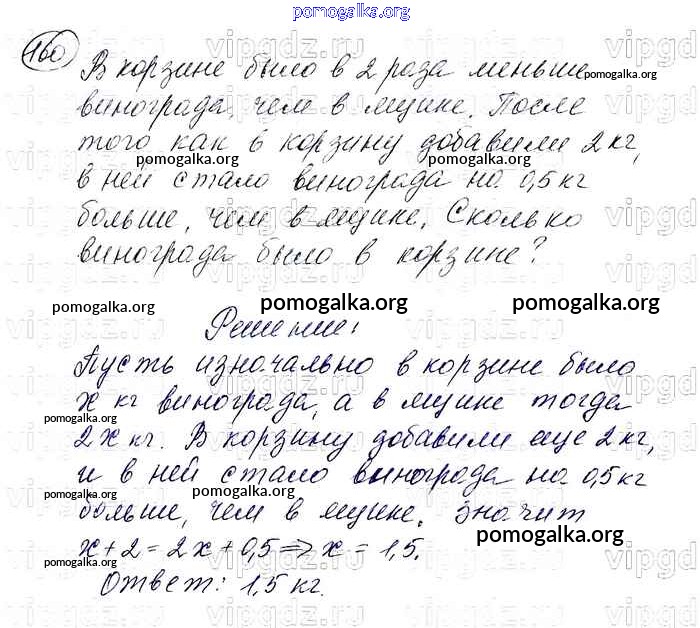 pomogalka.org
160
В корзине было в 2 раза меньше
винограда, чем в ящике. После
того как в корзину добавили 2 кг,
в ней стало винограда на 0,5 кг
больше, чем в ящике. Сколько
винограда было в корзине?
Решение:
Пусть изначально в корзине было
x кг винограда, а в ящике тогда
2x кг. В корзину добавили еще 2 кг,
и в ней стало винограда на 0,5 кг
больше, чем в ящике. Значит
x + 2 = 2x + 0,5 => x = 1,5.
Ответ: 1,5 кг.
pomogalka.org
pomogalka.org
pomogalka.org
pomogalka.org
pomogalka.org
pomogalka.org
pomogalka.org
pomogalka.org
pomogalka.org
pomogalka.org
pomogalka.org